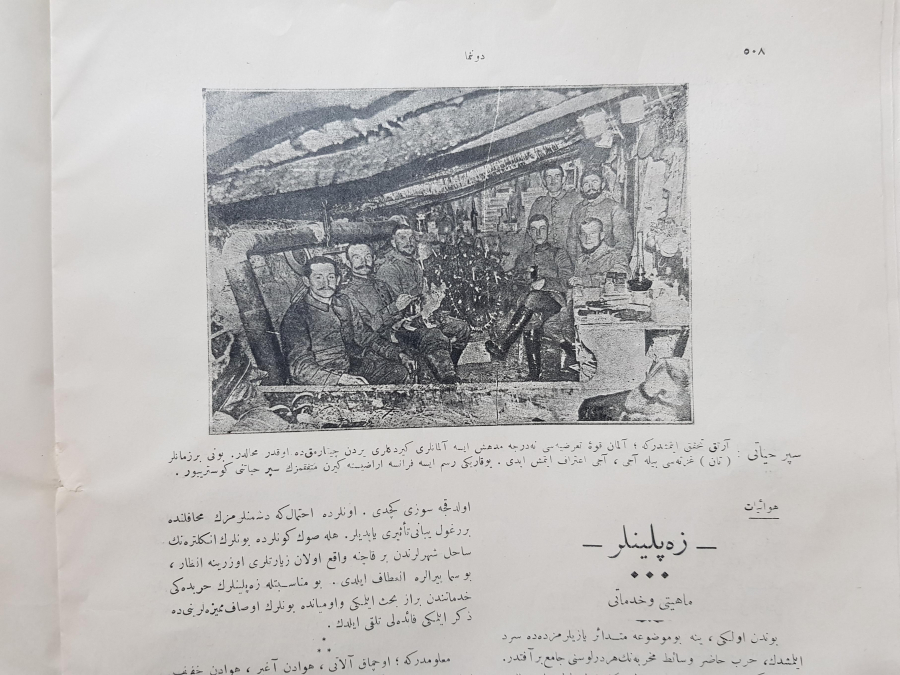 ٥٠٨
دوننما
سپر حیاتی : آرتق تحقق ایتمشدركه ؛ آلمان قوۀ تعرضیه‌سی نه‌درجه مدهش ایسه آلمانلری كیردكلری یردن چیقارمق‌ده اوقدر محالدر. بونی برزمانلر
( تان ) غزته‌سی بیله آجی ، آجی اعتراف ایتمش ایدی . یوقاریكی رسم ایسه فرانسه اراضیسنه كیرن متفقمزك سپر حیاتنی كوستریيور .
هوائیات
— زه‌پلینلر —
ماهیتی و خدماتی
بوندن اولكی ، ینه بوموضوعه متدائر یازیلرمزده‌ده سرد
ایلمشدك، حرب حاضر وسائط مخربه‌نك‌هردرلوسنی جامع برآفتدر.
اولدقجه سوزی كچدی . اونلرده احتمال‌كه دشمنلرمزك محافلنده
بررغول یبانی‌تأثیری یاپدیلر. هله صوك كونلرده بونلرك انكلتره‌نك
ساحل شهرلرندن برقاچنه واقع اولان زیارتلری اوزرینه انظار ،
بوسما پیرالره انعطاف ایلدی . بو مناسبتله زه‌پلینلرك حربده‌كی
خدماتندن براز بحث ایتمكی واومیانده بونلرك اوصاف ممیزه‌لرینی‌ده
ذكر ایتمكی فائده‌لی تلقی ایلدك.
معلومدركه ؛ اوچماق آلاتی ، هوادن آغیر ، هوادن خفیف